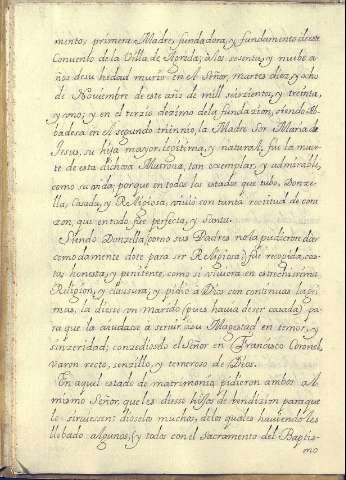 mento, primera Madre, fundadora, y fundamento deste
Convento de la Villa de Agreda; a los sesenta, y nuebe a-
ños de su hedad murio en el Señor, martes diez, y ocho
de Noviembre de este año de mill seiscientos, y treinta,
y uno; y en el terzio dezimo de la fundazion, siendo Ab-
badesa en el segundo trienio, la Madre Sor Maria de
Jesus, su hija mayor, legitima, y natural, fue la muer-
te de esta dichosa Matrona, tan exemplar, y admirable,
como su vida; porque en todos los estados que tubo, Donze-
lla, Casada, y Religiosa, vivió con tanta rectitud de cora-
zon, que en todo fue perfecta, y santa.
Siendo Donzella (como sus Padres no la pudieron dar
comodamente dote para ser Religiosa) fue recogida, cas-
ta, honesta, y penitente, como si viviera en estrechissima
Religion, y clausura; y pidió a Dios con continuas lagri-
mas, la diesse un marido (pues havia de ser casada) pa-
ra que la aiudase a servir a su Magestad en temor, y
sinzeridad; conzedioselo el Señor en Francisco Coronel,
varon recto, senzillo, y temeroso de Dios.
En aquel estado de matrimonio, pidieron ambos al
mismo Señor, que les diesse hijos de bendision para que
le sirviessen: dioselos muchos, de los quales haviendoles
llebado algunos, (y todos con el Sacramento del Baptis-
mo